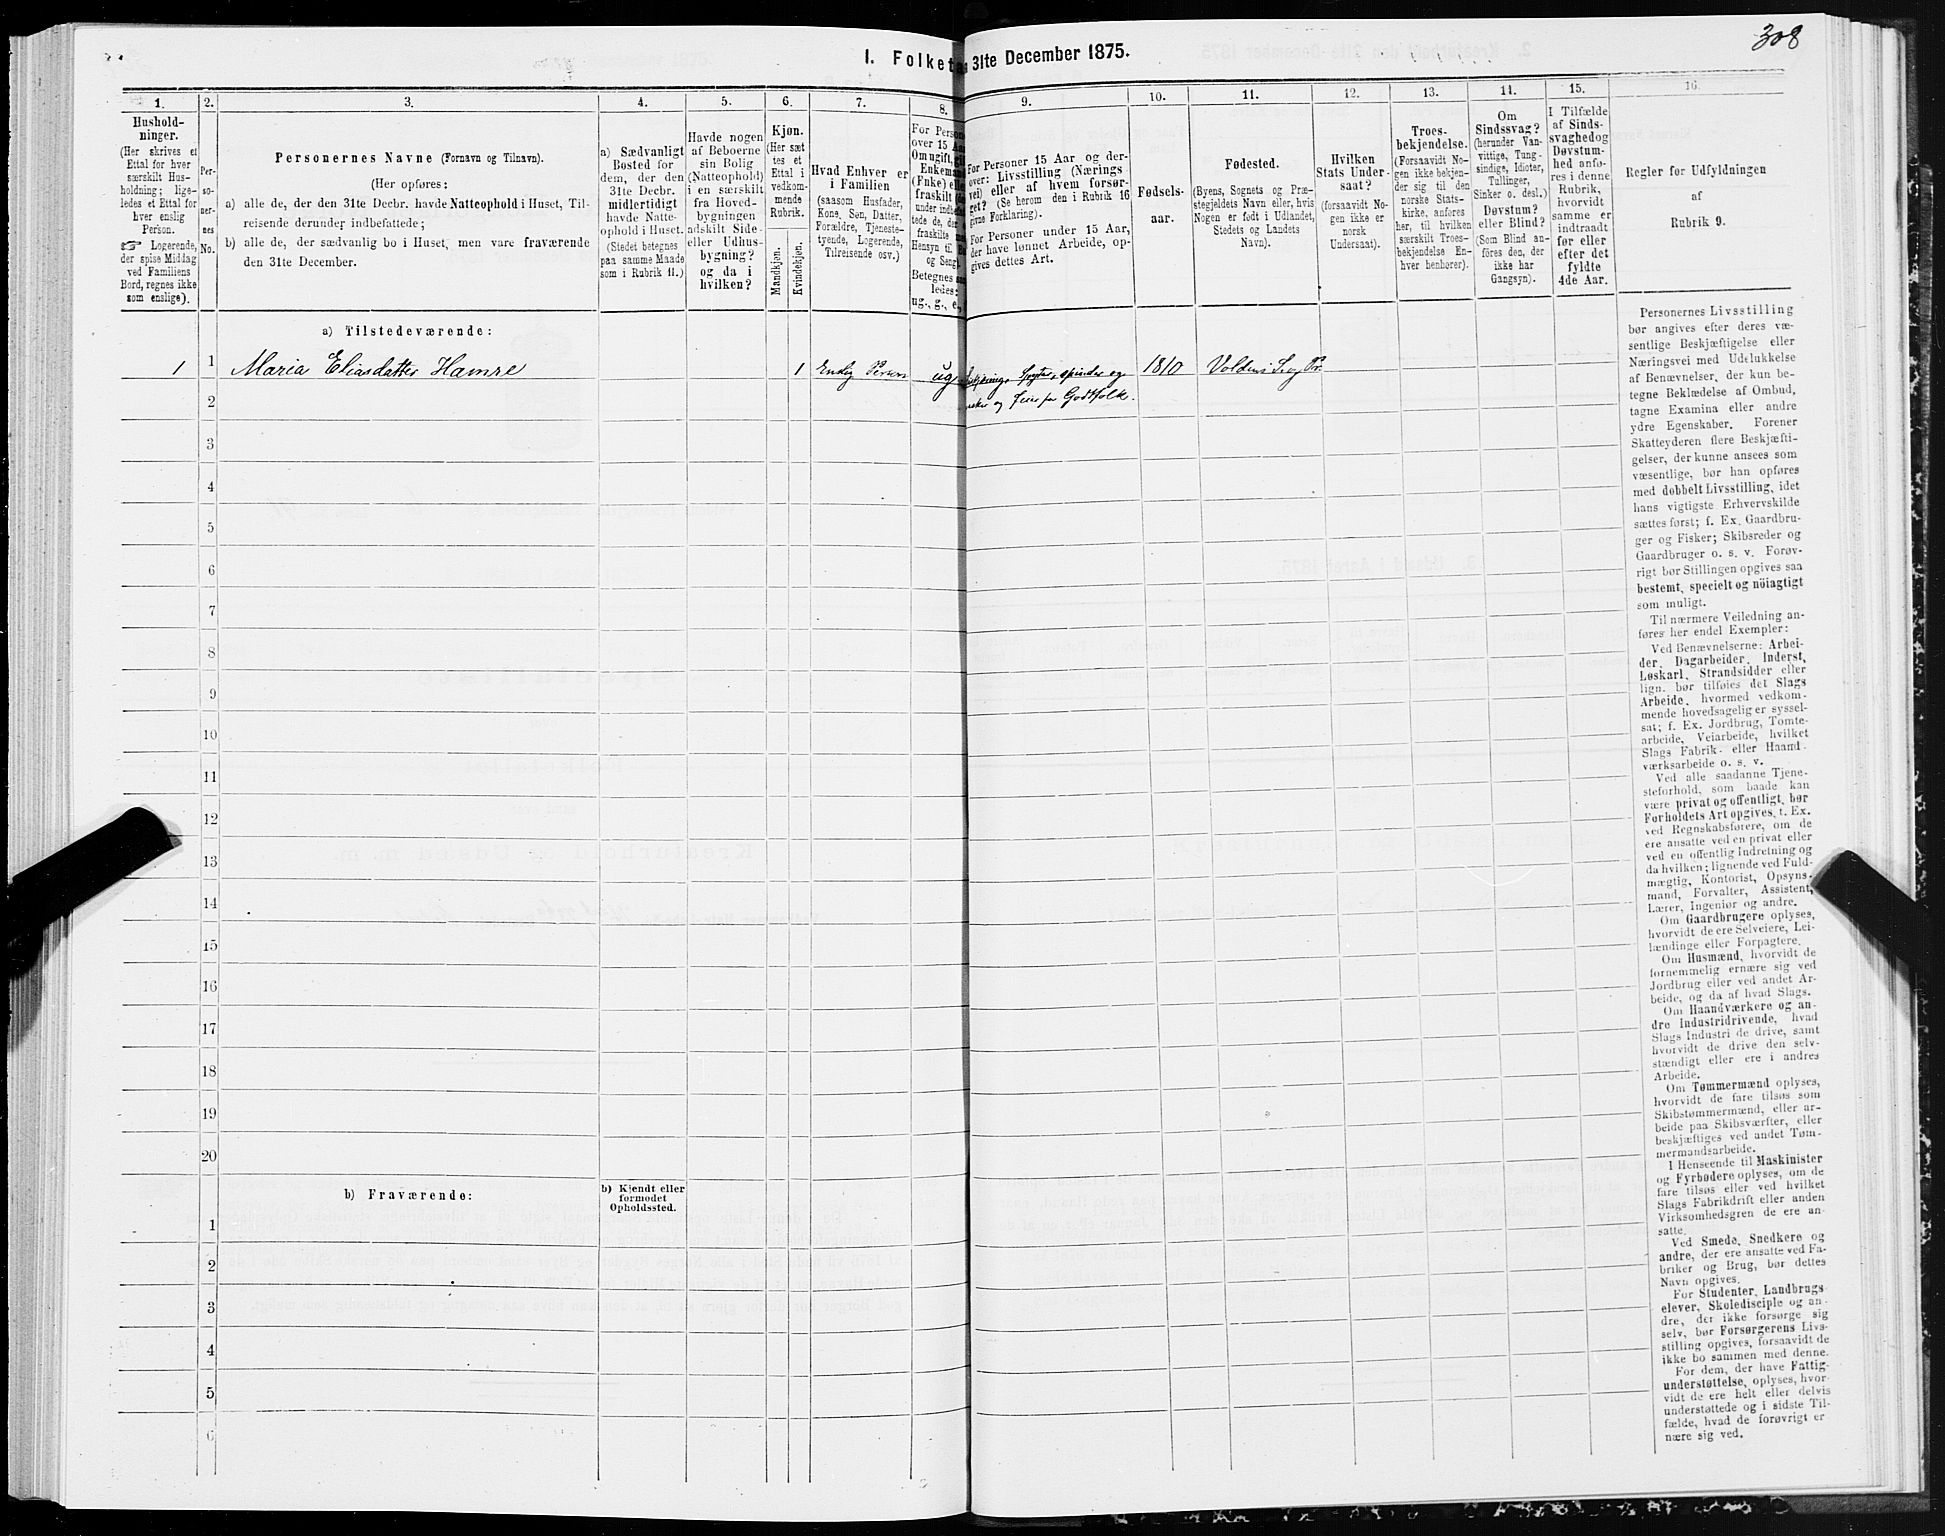 308
I. Folketa 31te December 1875.
1. 2. 3. 4. 5. 6. 7. 8. 9. 10. 11. 12. 13. 14. 15. 16.
Hushold-
ninger.
(Her skrives et
Ettal for hver
særskilt Hus-
holdning; lige-
ledes et Ettal for
hver enslig
Person.
☞ Logerende,
der spise Middag
ved Familiens
Bord, regnes ikke
som enslige).
Per-
so-
ner-
nes
No.
Personernes Navne (Fornavn og Tilnavn).
(Her opføres:
a) alle de, der den 31te Decbr. havde Natteophold i Huset, Til-
reisende derunder indbefattede;
b) alle de, der sædvanlig bo i Huset, men vare fraværende
den 31te December.
a) Sædvanligt
Bosted for
dem, der den
31te Decbr.
midlertidigt
havde Natte-
ophold i Huset.
(Stedet betegnes
paa samme Maade
som i Rubrik 11.)
Havde nogen
af Beboerne
sin Bolig
(Natteophold)
i en særskilt
fra Hoved-
bygningen
adskilt Side-
eller Udhus-
bygning?
og da i
hvilken?
Kjøn.
(Her sæt
tes et
Ettal i
vedkom-
mende
Rubrik.
Mandkjøn.
Kvindekjøn.
Hvad Enhver er
i Familien
(saasom Husfader,
Kone, Søn, Datter,
Forældre, Tjeneste-
tyende, Logerende,
Tilreisende osv.)
For Person
over 15 Aa
Om ugift, gi
Enkemand
(Enke) elle
fraskilt
under indbefat
tede de, der
fraskilte m
Hensyn til
og Seng).
Betegnes
ledes:
ug., g., e.,
For Personer 15 Aar og der-
over: Livsstilling (Nærings
vei) eller af hvem forsør-
get? (Se herom den i Rubrik 16
givne Forklaring).
For Personer under 15 Aar,
der have lønnet Arbeide, op-
gives dettes Art.
Fødsels-
aar.
Fødested.
(Byens, Sognets og Præ-
stegjeldets Navn eller, hvis
Nogen er født i Udlandet,
Stedets og Landets
Navn).
Hvilken
Stats Under-
saat?
(forsaavidt No-
gen ikke er
norsk
Undersaat).
Troes-
bekjendelse.
(Forsaavidt No-
gen ikke bekjen-
der sig til den
norske Stats-
kirke, anføres
her, til hvilken
særskilt Troes-
bekjendelse En-
hver henhører).
Om
Sindssvag?
(herunder Van-
vittige, Tung-
sindige, Idioter,
Tullinger,
Sinker o. desl.)
Døvstum?
eller Blind?
(Som Blind an-
føres den, der
ikke har
Gangsyn).
I Tilfælde
af Sinds-
svaghed og
Døvstum-
hed anfø-
res i denne
Rubrik,
hvorvidt
samme er
indtraadt
før eller
efter det
fyldte
4de Aar.
Regler før Udfyldningen
af
Rubrik 9.
a) Tilstedeværende:
1 1 Maria Eliasdatter Hamre 1 Enslig Person ug Spøter, spinder og 1810 Volden Sog Pr.
2 og feier for Godtfolk.
3
4
5
6
7
8
9
10
11
12
13
14
15
16
17
18
19
20
b) Fraværende:
b) Kjendt eller
formodet
Opholdssted.
1
2
3
4
5
6
Personernes Livsstilling
bør angives efter deres væ-
sentlige Beskjæftigelse eller
Næringsvei med Udelukkelse
af Benævnelser, der kun be-
tegne Beklædelse af Ombud,
tagne Examina eller andre
ydre Egenskaber. Forener
Skatteyderen flere Beskjæfti-
gelser, der kunne ansees som
væsentlige, bør han opføres
med dobbelt Livsstilling, idet
hans vigtigste Erhvervskilde
sættes først; f. Ex. Gaardbru-
ger og Fisker; Skibsreder og
Gaardbruger o. s. v. Forøv-
rigt bør Stillingen opgives saa
bestemt, specielt og nöiagtigt
som muligt.
Til nærmere Veiledning an-
føres her endel Exempler:
Ved Benævnelserne: Arbei-
der, Dagarbeider, Inderst,
Løskarl, Strandsidder eller
lign. bør tilføies det Slags
Arbeide, hvormed vedkom-
mende hovedsagelig er syssel-
sat; f. Ex. Jordbrug, Tomte-
arbeide, Veiarbeide, hvilket
Slags Fabrik- eller Haand-
værksarbeide o. s. v.
Ved alle saadanne Tjene-
steforhold, som baade kan
være privat og offentligt, bør
Forholdets Art opgives, f. Ex.
ved Regnskabsførere, om de
ere ansatte ved en privat eller
ved en offentlig Indretning og
da hvilken; lignende ved Fuld-
mægtig, Kontorist, Opsyns-
mand, Forvalter, Assistent,
Lærer, Ingeniør og andre.
Om Gaardbrugere oplyses,
hvorvidt de ere Selveiere, Lei-
lændinge eller Forpagtere.
Om Husmænd, hvorvidt de
fornemmelig ernære sig ved
Jordbrug eller ved andet Ar-
beide, og da af hvad Slags.
Om Haandværkere og an-
dre Industridrivende, hvad
Slags Industri de drive, samt
hvorvidt de drive den selv-
stændigt eller ere i andres
Arbeide.
Om Tømmermænd oplyses,
hvorvidt de fare tilsøs som
Skibstømmermænd, eller ar-
beide paa Skibsværfter, eller
beskjæftiges ved andet Tøm-
mermandsarbeide.
I Henseende til Maskinister
og Fyrbødere oplyses, om de
fare tilsøs eller ved hvilket
Slags Fabrikdrift eller anden
Virksomhedsgren de ere an-
satte.
Ved Smede, Snedkere og
andre, der ere ansatte ved Fa-
briker og Brug, bør dettes
Navn opgives.
For Studenter, Landbrugs
elever, Skoledisciple og an-
dre, der ikke forsørge sig
selv, bør Forsørgerens Livs-
stilling opgives, forsaavidt de
ikke bo sammen med denne.
For dem, der have Fattig-
understøttelse, oplyses, hvor-
vidt de ere helt eller delvis
understøttede og i sidste Til-
fælde, hvad de forøvrigt er
nære sig ved.